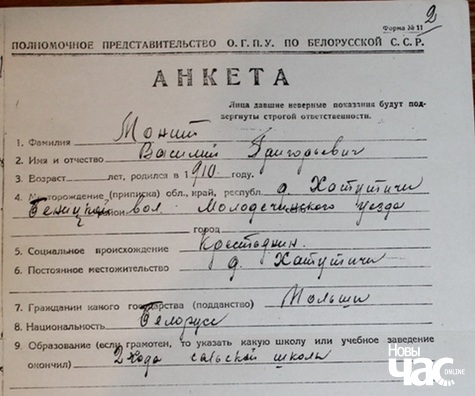 2
Форма № 11
ПОЛНОМОЧНОЕ ПРЕДСТАВИТЕЛЬСТВО О. Г. П. У. ПО БЕЛОРУССКОЙ С. С. Р.
АНКЕТА
Лица давшие неверные показания будут под-
вергнуты строгой ответственности.
1. Фамилия
2. Имя и отчество Василий Григорьевич
3. Возраст лет, родился в 1910 году.
4. Месторождение (приписка) обл., край, республ. д. Хатутичи
вол. Молодечненского уезда
город
5. Социальное происхождение Крестьянин.
6. Постоянное местожительство д. Хатутичи
7. Гражданин какого государства (подданство) Польши
8. Национальность Белорусс
9. Образование (если грамотен, то указать какую школу или учебное заведение
окончил) 2 года сельской школы
НОВЫ
ЧАС
ONLINE